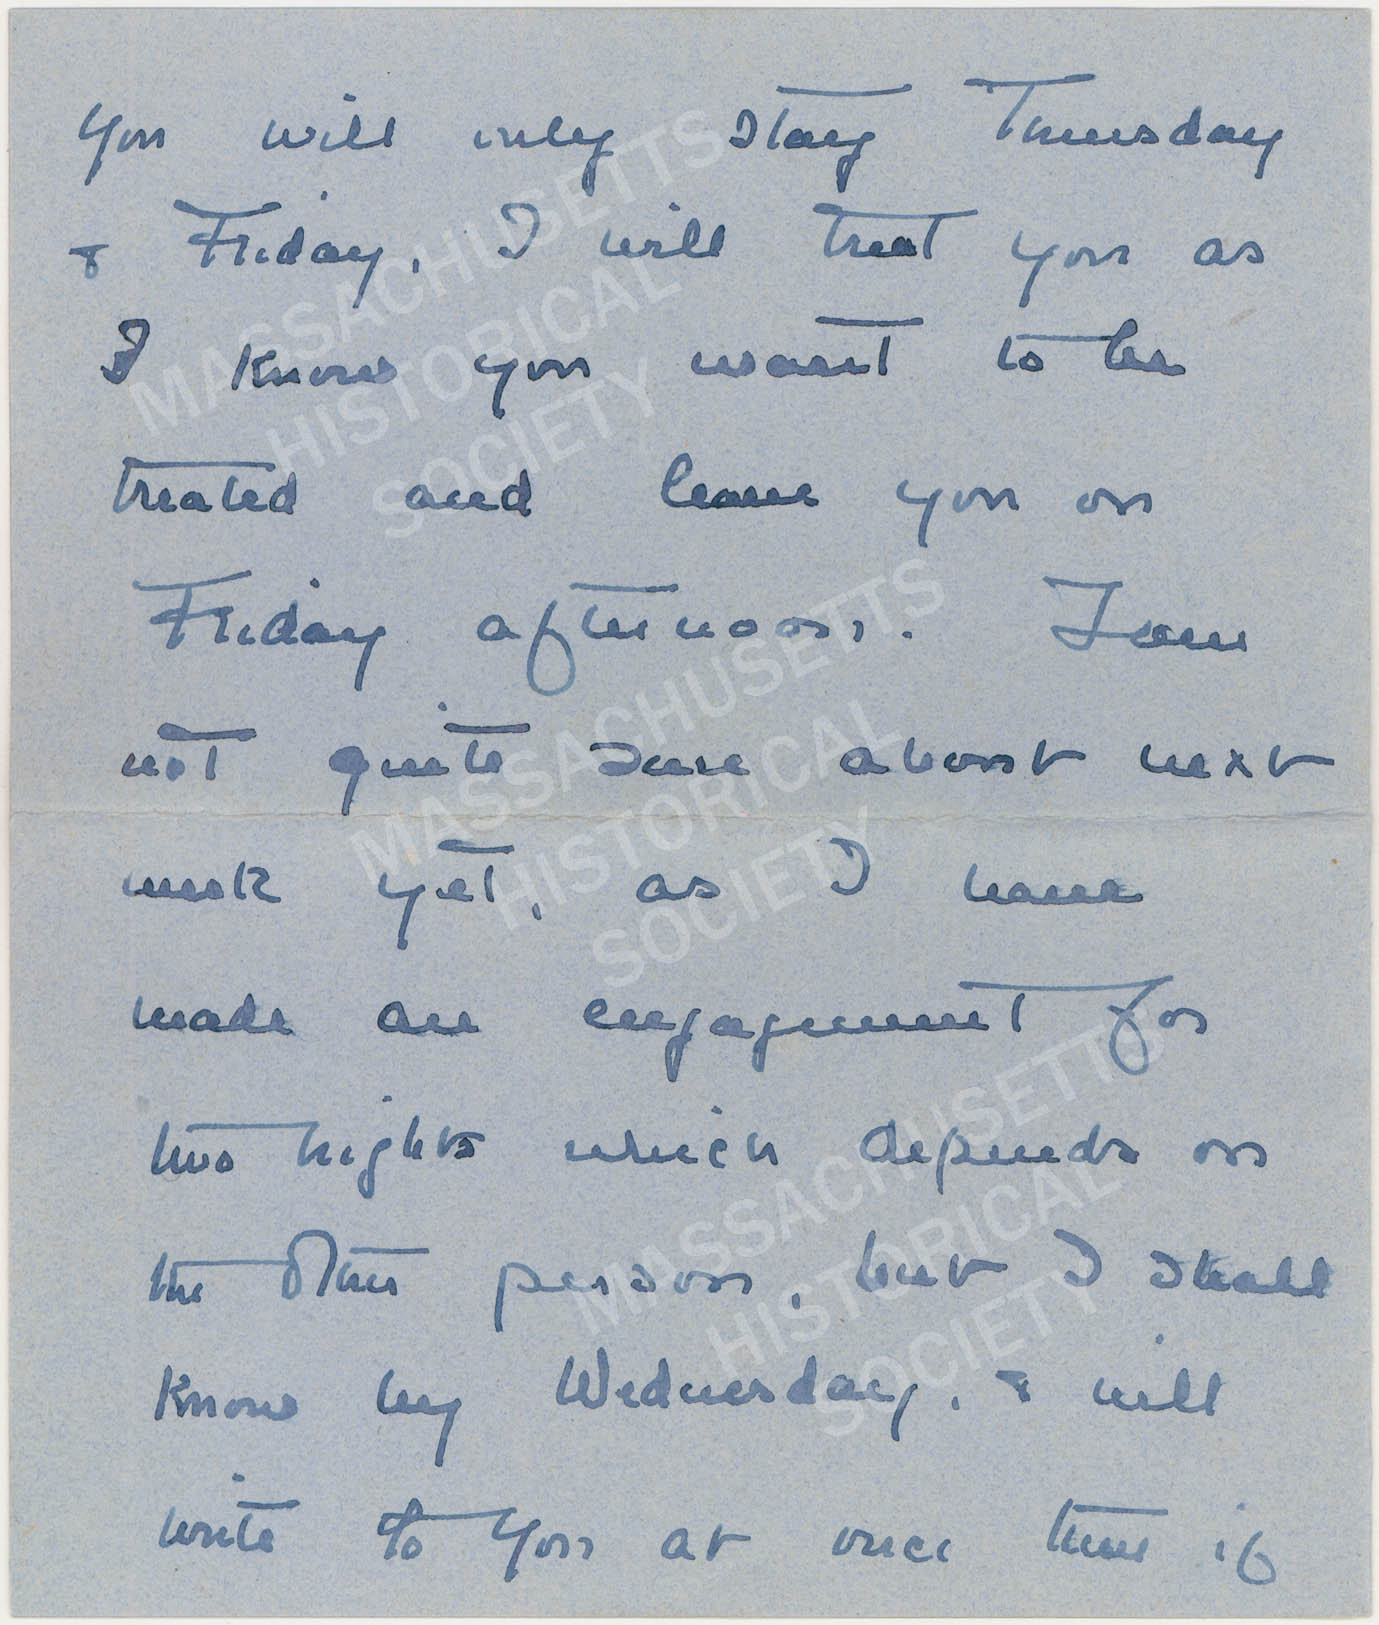 you will only stay Thursday
& Friday, I will treat you as
I know you want to be
treated and leave you on
Friday afternoon. I am
not quite sure about next
week yet, as I have
made an engagement for
two nights which depends on
the other person, but I shall
know by Wednesday, & will
write to you at once then if
MASSACHUSETTS
HISTORICAL
SOCIETY
MASSACHUSETTS
HISTORICAL
SOCIETY
MASSACHUSETTS
HISTORICAL
SOCIETY